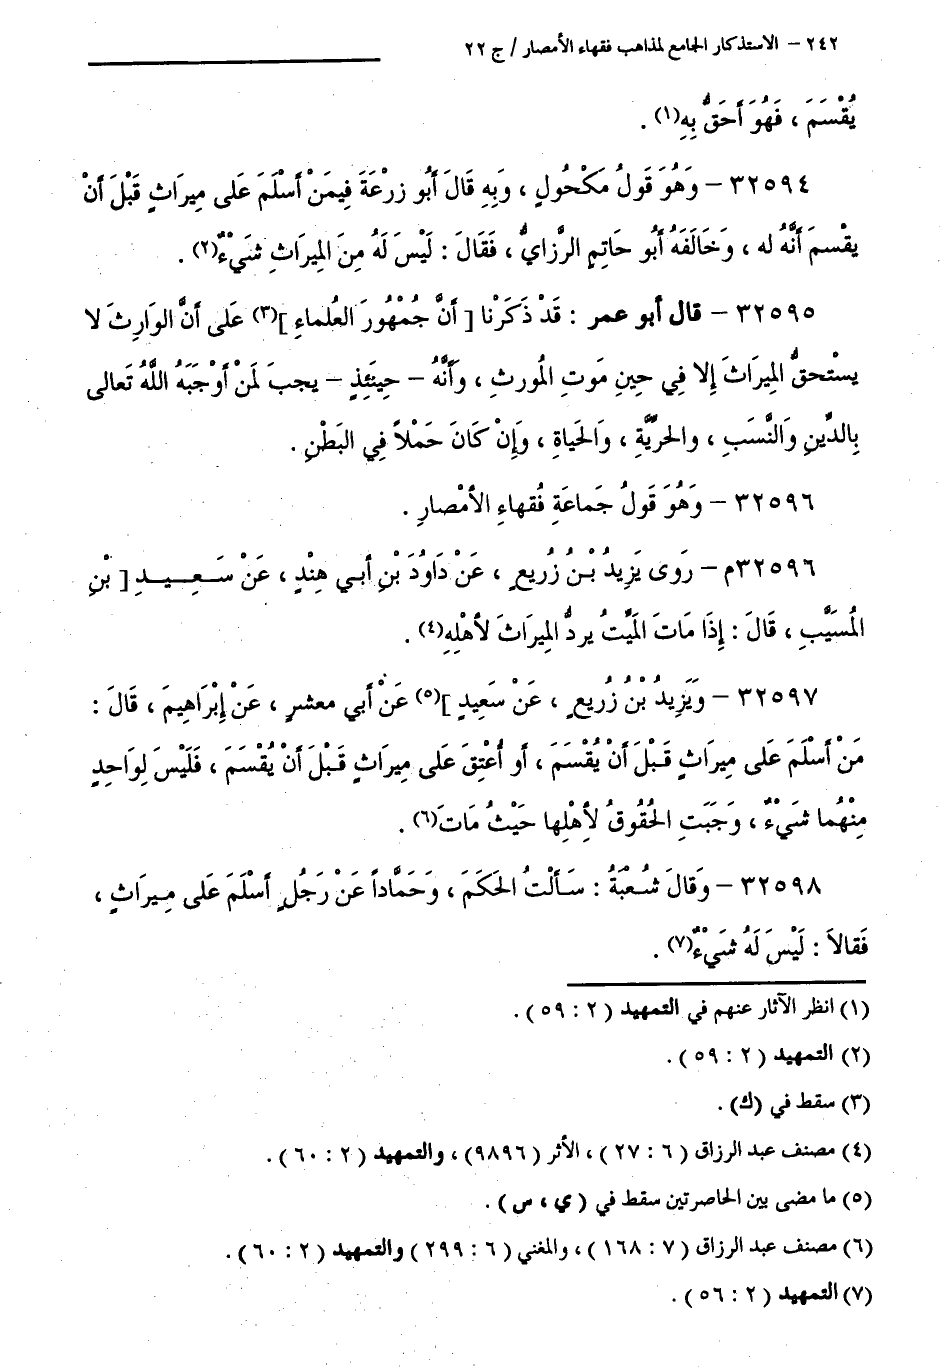 ٢٤٢ – الاستذكار الجامع لمذاهب فقهاء الأمصار / ج ٢٢
يُقْسَمَ ، فَهُوَ أَحَقُّ بِهِ(١) .
٣٢٥٩٤ – وَهُوَ قَولُ مكْحُولٍ ، وَبِهِ قَالَ أَبُو زرْعَةَ فِيمَنْ أَسْلَمَ عَلى مِيرَاثٍ قَبْلَ أَنْ
يقْسمَ أَنَّهُ له ، وَخَالَفَهُ أَبُو حَاتِمٍ الرَّازيُّ ، فَقَالَ : لَيْسَ لَهُ مِنَ المِيرَاثِ شَيْءٌ(٢) .
٣٢٥٩٥ – قال أبو عمر : قَدْ ذَكَرْنا [ أَنَّ جُمْهُورَ العُلماءِ ](٣) عَلى أَنَّ الوَارِثَ لا
يسْتحقُّ المِيرَاثَ إِلا فِي حِينِ مَوتِ المُورثِ ، وَأَنَّهُ – حِينَئِذٍ – يجبَ لمَنْ أَوْجَبَهُ اللَّهُ تَعالى
بِالدِّينِ وَالنَّسَبِ ، والحرِّيَّةِ ، وَالحَياةِ ، وَإِنْ كَانَ حَمْلاً فِي البَطْنِ .
٣٢٥٩٦ – وَهُوَ قَولُ جَماعَةِ فُقهاءِ الأمْصارِ .
٣٢٥٩٦م – رَوَى يَزِيدُ بْنُ زُريعٍ ، عَنْ دَاوُدَ بْنِ أَبي هِنْدٍ ، عَنْ سَعِيدِ [ بْنِ
المُسَيَّبِ ، قَالَ : إِذَا مَاتَ المَيِّتُ يردُّ المِيرَاثَ لأهْلِهِ(٤) .
٣٢٥٩٧ – وَيَزِيدُ بْنُ زُريعٍ ، عَنْ سَعِيدٍ ](٥) عَنْ أَبي معشرٍ ، عَنْ إِبْرَاهِيمَ ، قَالَ :
مَنْ أَسْلَمَ عَلى مِيرَاثٍ قَبْلَ أَنْ يُقْسَمَ ، أَو أُعْتِقَ عَلى مِيرَاثٍ قَبْلَ أَنْ يُقْسَمَ ، فَلَيْسَ لِوَاحِدٍ
مِنْهُما شَيْءٌ ، وَجَبَتِ الحُقُوقُ لأَهْلِها حَيْثُ مَاتَ(٦) .
٣٢٥٩٨ – وَقَالَ شُعْبَةُ : سَأَلْتُ الحَكَمَ ، وَحَمَّاداً عَنْ رَجُلٍ أَسْلَمَ عَلى مِيرَاثٍ ،
فَقالاَ : لَيْسَ لَهُ شَيْءٌ(٧) .
(١) انظر الآثار عنهم في التمهيد ( ٢ : ٥٩ ) .
(٢) التمهيد ( ٢ : ٥٩ ) .
(٣) سقط في (ك) .
(٤) مصنف عبد الرزاق ( ٦ : ٢٧ ) ، الأثر (٩٨٩٦) ، والتمهيد ( ٢ : ٦٠ ) .
(٥) ما مضى بين الحاصرتين سقط في ( ي ، س ) .
(٦) مصنف عبد الرزاق ( ٧ : ١٦٨ ) ، والمغني ( ٦ : ٢٩٩ ) والتمهيد ( ٢ : ٦٠ ) .
(٧) التمهيد ( ٢ : ٥٦ ) .